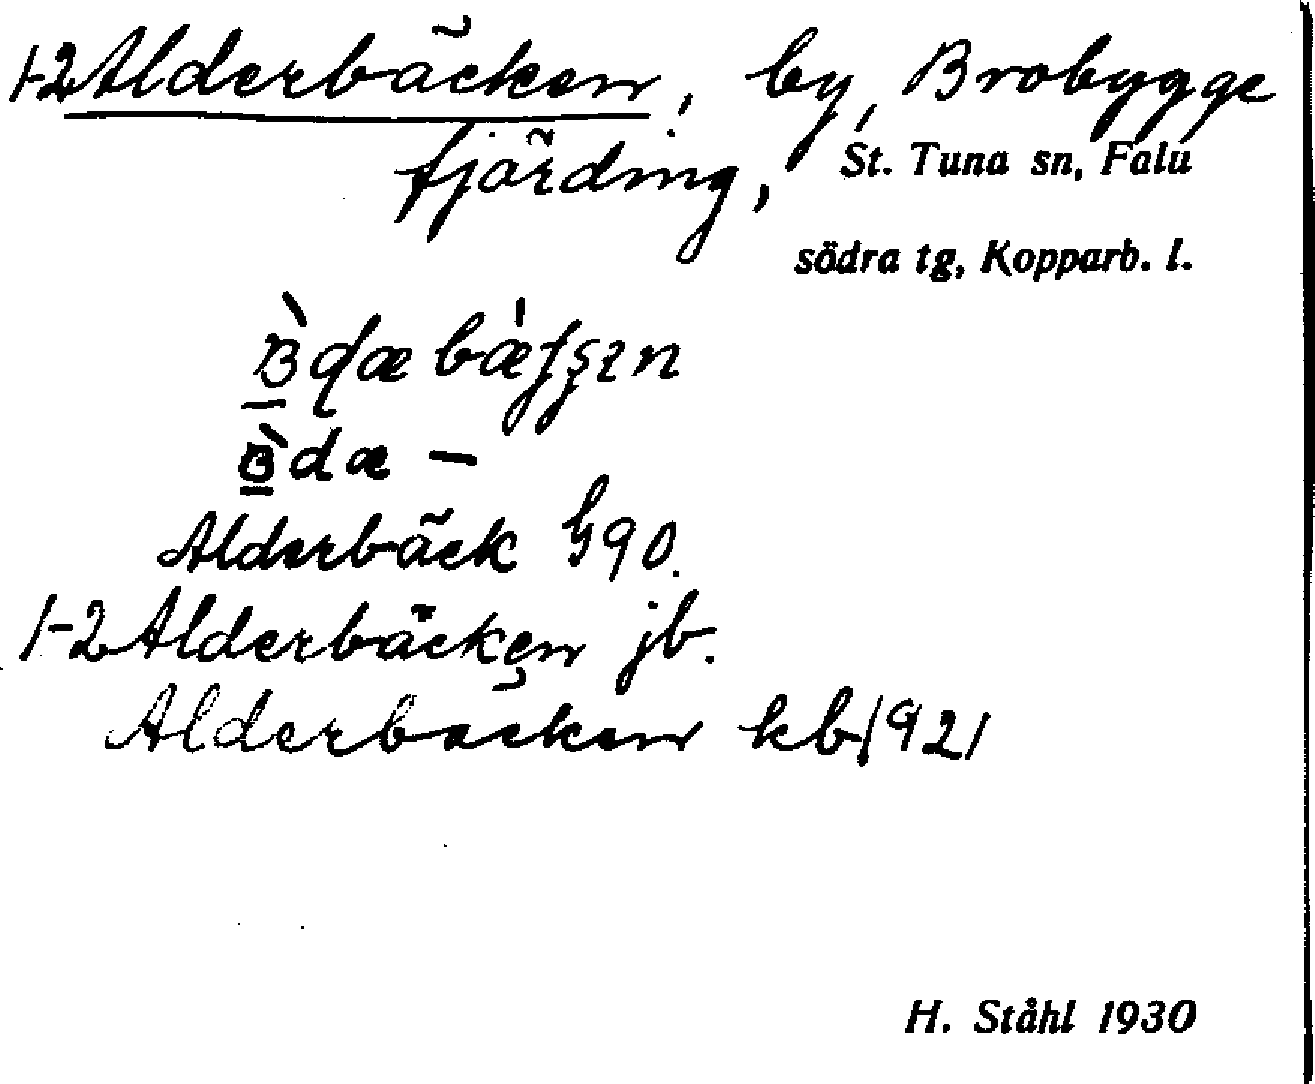 1-2 Alderbäcken, by, Brobygge
fjärding, St. Tuna sn, Falu
södra tg, Kopparb. l.
Alderbäck G90.
1-2 Alderbäcken jb.
Alderbäcken kb 1921
H. Ståhl 1930